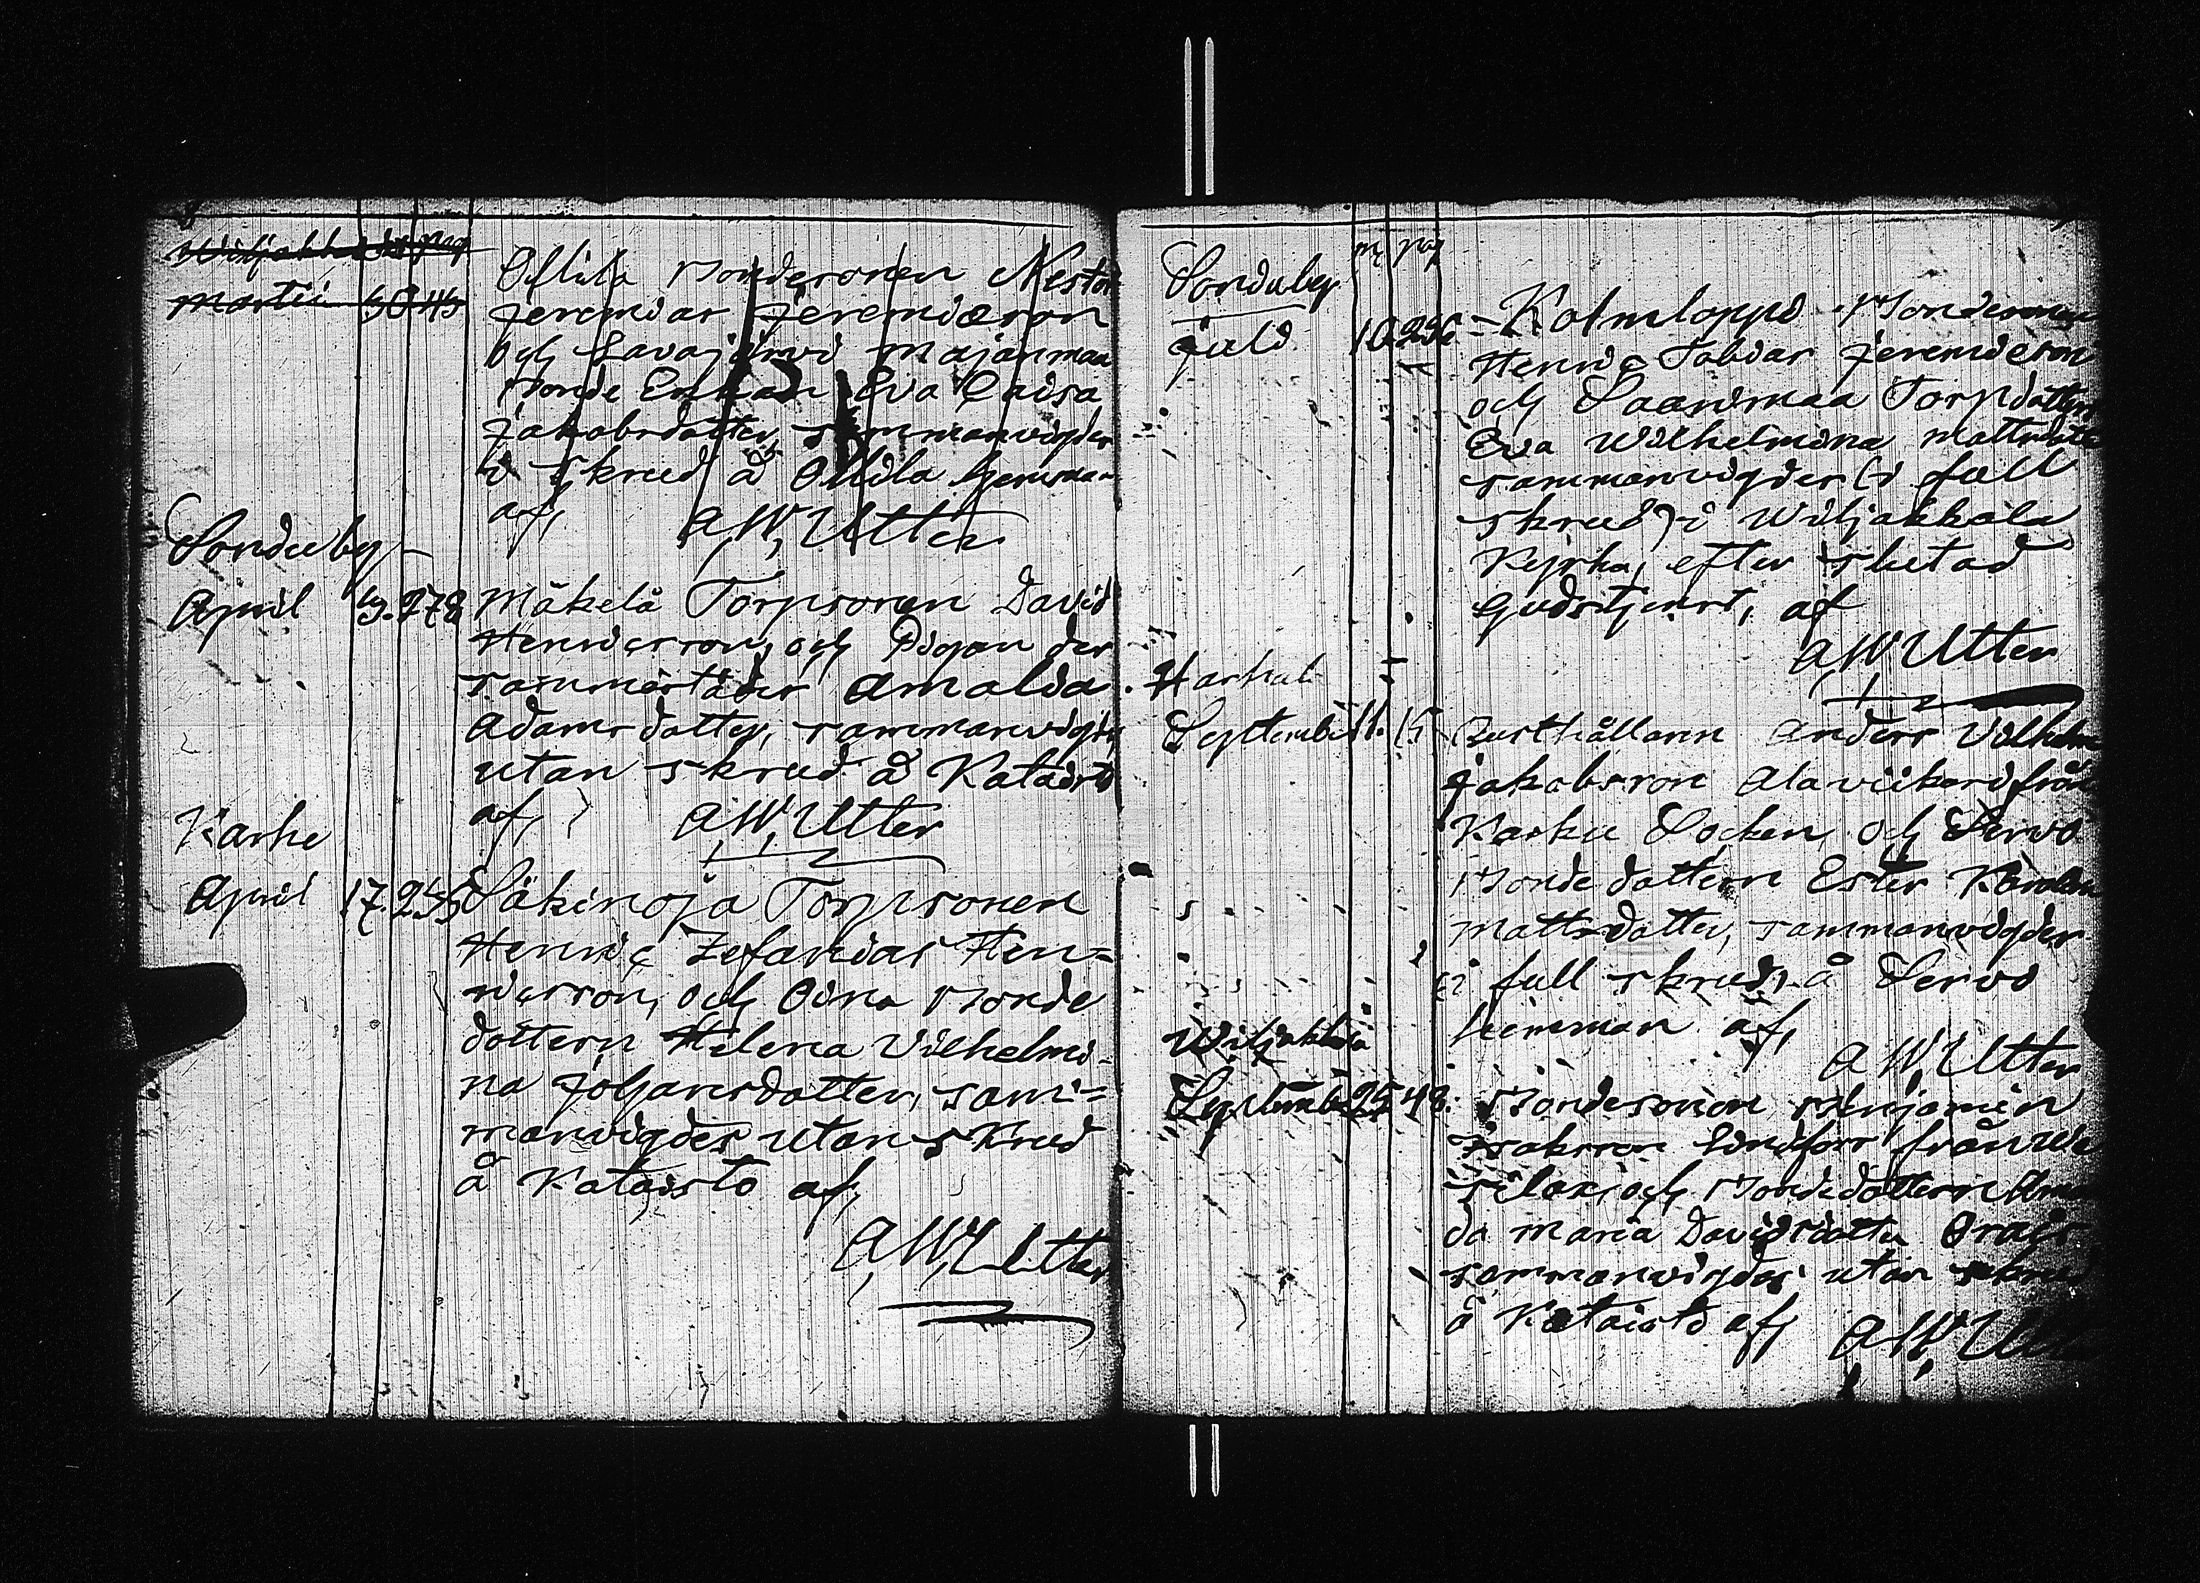 Wiljakkala dat pag
Martii 30 45
Ollila Bondesonen Nestor
Jeremias Jeremiæson
och Lavajärvi Majanmaa
Bonde Enkan Eva Caisa
Jakobsdotter, sammanvigdes
i skrud å Ollila hemman
af, A, W, Utter
Sonduby
April 9. 278
Mäkelä Torpsonen David
Henricsson, och Pigan der
sammastädes Amalda
Adamsdotter, sammanvigdes
utan skrud å Kataisto
af, A, W, Utter
Karhe
April 17. 255
Säkinoja Torpsonen
Henric Zefanias Hen=
ricsson, och Oina Bonde
dottern Helena Vilhelmi-
na Johansdotter, sam=
manvigdes utan skrud
å Kataisto af,
A, W, Utter
Sonduby pag
Juli 10. 296
Kolmloppi Bondesonen
Henric Tobias Jeremiæson
och Saarimaa Torpdottern
Eva Wilhelmina Mattsdotter
sammanvigdes (i full
skrud) i Wiljakkala
Kyrka, efter slutad
Gudstjenst, af
A, W, Utter
Harhala
September 11. 15
Rusthållaren Anders Vilhelm
Jakobsson Alaviikari från
Karku Socken och Servo
Bonde dottern Ester Karolina
Mattsdotter, sammanvigdes
(i full skrud) å Servo
hemman af,
A, W, Utter
Wiljakkala
September 25. 48.
Bondesonen Benjamin
Isaksson Lindfors från
och Bondedottern
da Maria Davidsdotter
sammanvigdes utan skrud
å Kataisto af, A, W, Utter